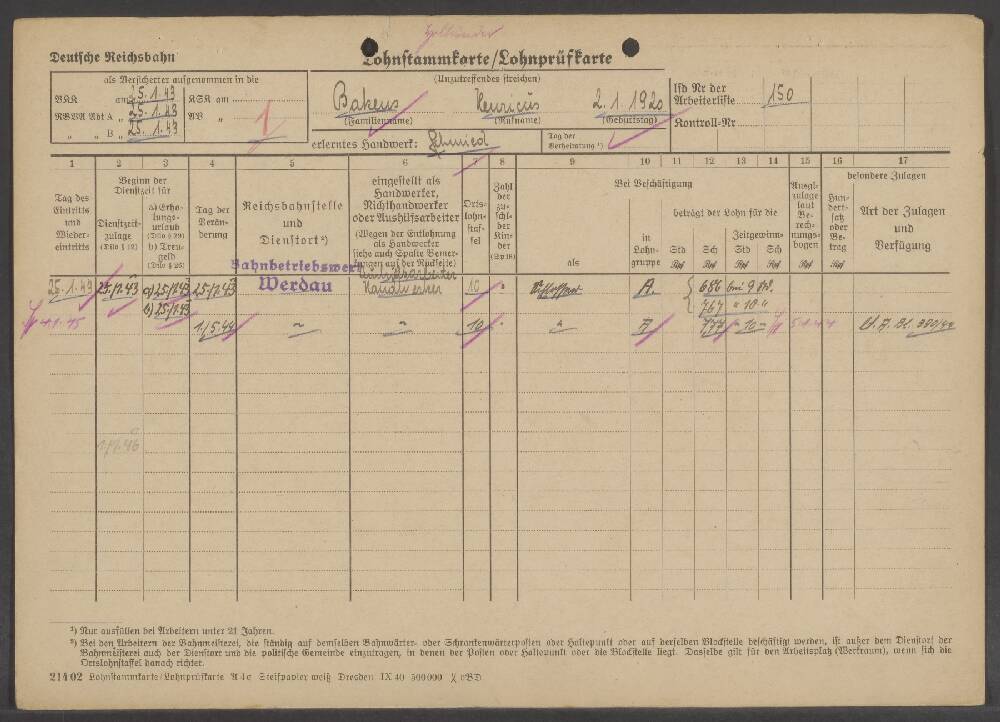 Holländer
Deutsche Reichsbahn
Lohnstammkarte/Lohnprüfkarte
(Unzutreffendes streichen)
als Versicherter aufgenommen in die
BKK am 25.1.43 KSK am
RBVA Abt A „ 25.1.43 PV „
„ „ B „ 25.1.43
1
Bakens Henricus 2.1.1920
(Familienname) (Rufname) (Geburtstag)
erlerntes Handwerk: Schmied
Tag der
Verheiratung ¹)
lfd Nr der
Arbeiterliste 150
Kontroll-Nr
1 2 3 4 5 6 7 8 9 10 11 12 13 14 15 16 17
Tag des
Eintritts
und
Wieder-
eintritts
Beginn der
Dienstzeit für
Dienstzeit-
zulage
(Dilo § 12)
a) Erho-
lungs-
urlaub
(Dilo § 29)
b) Treu-
geld
(Dilo § 26)
Tag der
Verän-
derung
Reichsbahnstelle
und
Dienstort ²)
eingestellt als
Handwerker,
Nichthandwerker
oder Aushilfsarbeiter
(Wegen der Entlohnung
als Handwerker
siehe auch Spalte Bemer-
kungen auf der Rückseite)
Orts-
lohn-
staf-
fel
Zahl
der
zu-
schl-
ber
Kin-
der
(Sp 18)
Bei Beschäftigung
als
in
Lohn-
gruppe
beträgt der Lohn für die
Zeitgewinn-
Std Sch Std Sch
Rpf Rpf Rpf Rpf
Ausgl-
zulage
laut
Be-
rech-
nungs-
bogen
besondere Zulagen
Hun-
dert-
satz
oder
Be-
trag
Art der Zulagen
und
Verfügung
Bahnbetriebswerk
Werdau
25.1.43 25/1.43 a) 25/1.43 25/1.43 Handwerker 10 A. 686 bei 9 Std.
b) 25/1.43 767 „ 10 „
1/5.44 ~ ~ 10 „ A 777 „ 10 „
1/1.46
¹) Nur ausfüllen bei Arbeitern unter 21 Jahren.
²) Bei den Arbeitern der Bahnmeisterei, die ständig auf demselben Bahnwärter- oder Schrankenwärterposten oder Haltepunkt oder auf derselben Blockstelle beschäftigt werden, ist außer dem Dienstort der
Bahnmeisterei auch der Dienstort und die politische Gemeinde einzutragen, in denen der Posten oder Haltepunkt oder die Blockstelle liegt. Dasselbe gilt für den Arbeitsplatz (Werkraum), wenn sich die
Ortslohnstaffel danach richtet.
214 02 Lohnstammkarte/Lohnprüfkarte A 4 q Steifpapier weiß Dresden IX 40 500 000 vBD